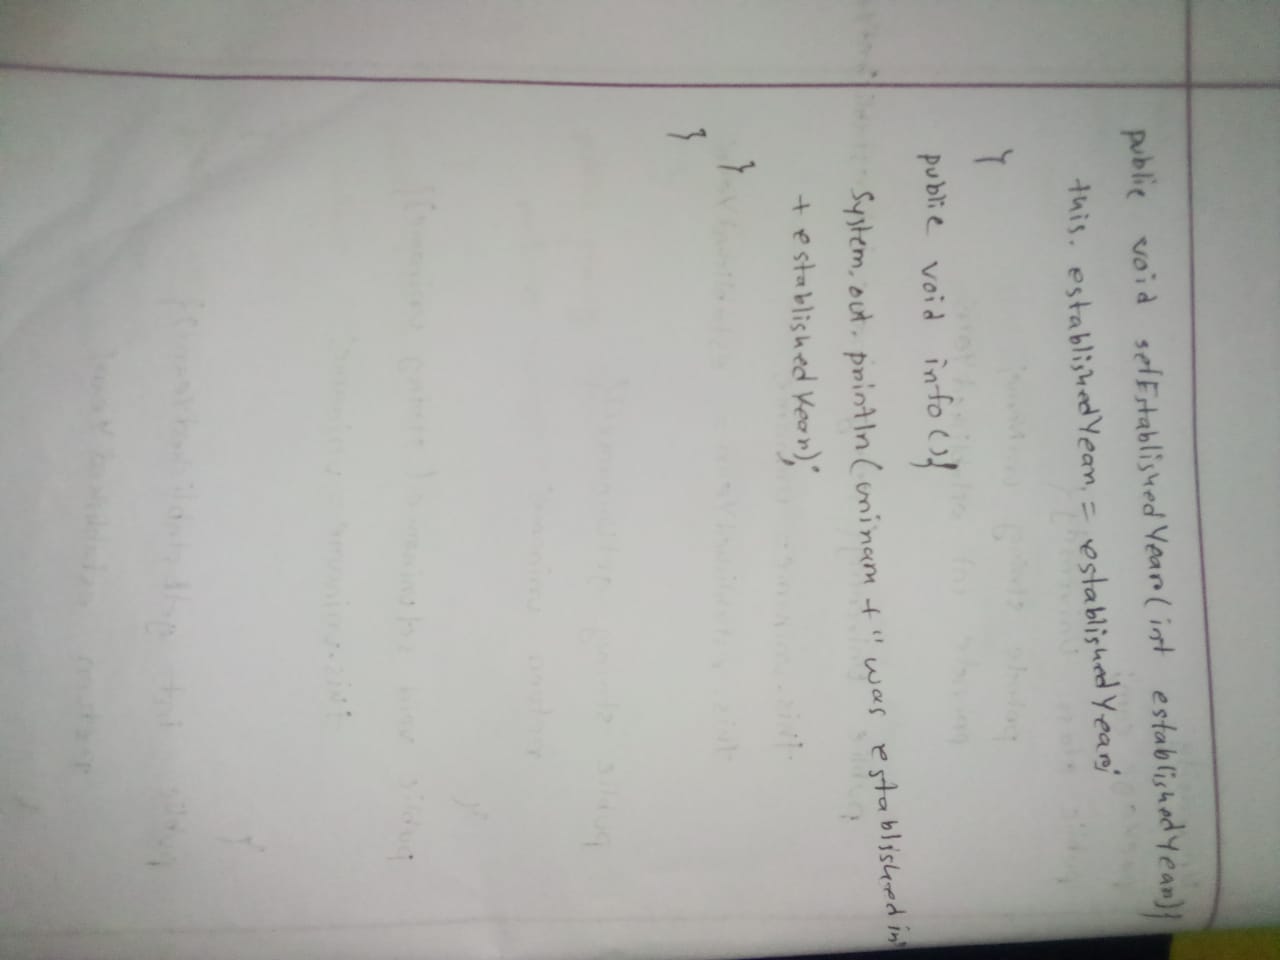 public void setEstablishedYear(int establishedYear){
this.establishedYear = establishedYear;
}
public void info(){
System.out.println(uninam + " was established in"
+ establishedYear);
}
}